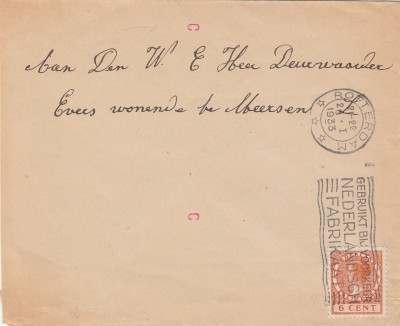 C
Aan Den W. E Heer Deurwaarder
Evers wonende te Meersen
ROTTERDAM
21-22
I
1933
C
GEBRUIKT BIJ VOORKEUR
NEDERLANDSCH
FABRIKAAT
6 CENT